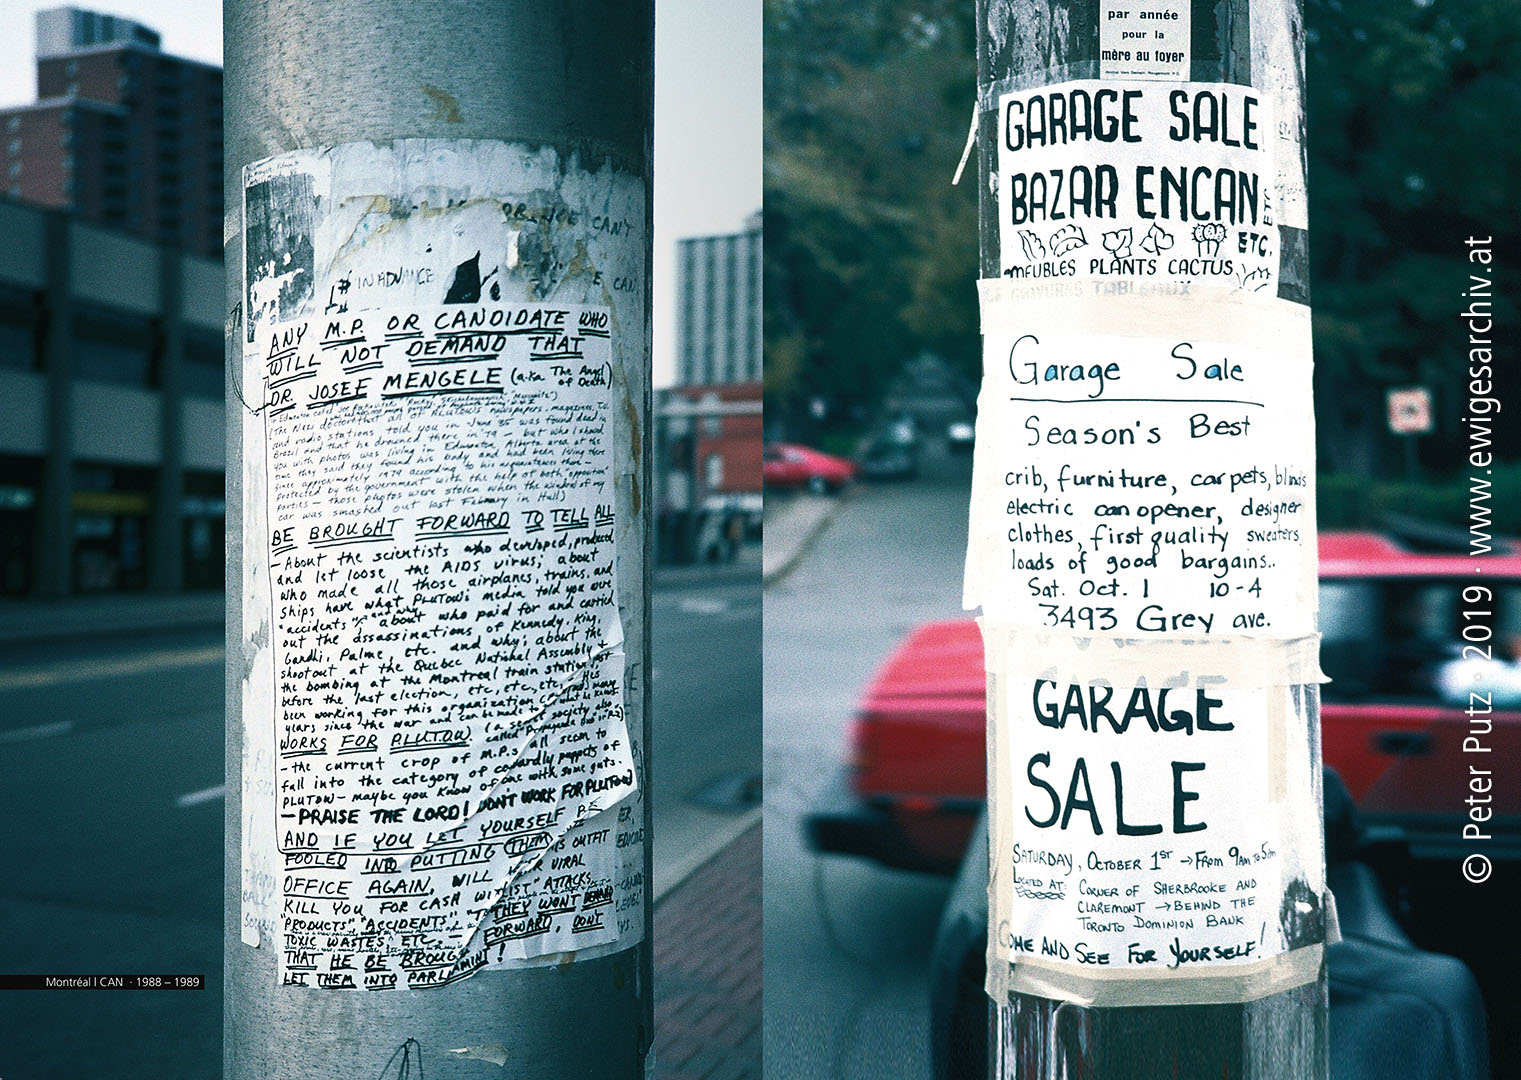 OR
CAN'T
IN ADVANCE
E CAN
ANY M.P. OR CANDIDATE WHO
WILL NOT DEMAND THAT
DR. JOSEF MENGELE (a.k.a. The Angel
of Death)
(The Nazi doctor that all of PLUTOW'S newspapers, magazines, T.V.
and radio stations told you in June 85 was found dead in
Brazil and that he drowned there in '79 — but who I showed
you with photos was living in Edmonton, Alberta area at the
time they said they found his body and had been living there
since approximately 1979 according to his acquaintances there —
protected by the government with the help of both "opposition"
parties — those photos were stolen when the window of my
car was smashed out last February in Hull)
BE BROUGHT FORWARD TO TELL ALL
— About the scientists who developed, produced,
and let loose the AIDS virus; about
who made all those airplanes, trains, and
ships have what PLUTOW'S media told you were
"accidents" and why; about who paid for and carried
out the assassinations of Kennedy, King,
Gandhi, Palme, etc. and why; about the
shootout at the Quebec National Assembly &
the bombing at the Montreal train station just
before the last election, etc, etc, etc. His
been working for this organization
years since the war and can be made to
WORKS FOR PLUTOW. (a secret society also
— the current crop of M.P.s all seem to
fall into the category of cowardly puppets of
PLUTOW — maybe you know of one with some guts.
— PRAISE THE LORD! DON'T WORK FOR PLUTOW
AND IF YOU LET YOURSELF BE
FOOLED INTO PUTTING THEM
OFFICE AGAIN, WILL
IS OUTFIT
KILL YOU FOR CASH WITH
VIRAL
"LIST" ATTACKS,
"PRODUCTS" "ACCIDENTS"
THEY WONT DEMAND
TOXIC WASTES ETC.
FORWARD, DONT
THAT HE BE BROUG
LET THEM INTO PARLIAMINT!
Montréal I CAN · 1988 – 1989
par année
pour la
mère au foyer
GARAGE SALE
BAZAR ENCAN
ETC
ETC.
MEUBLES PLANTS CACTUS
GRAVURES TABLEAUX
Garage Sale
Season's Best
crib, furniture, carpets, blinds
electric can opener, designer
clothes, first quality sweaters,
loads of good bargains..
Sat. Oct. 1 10-4
3493 Grey ave.
GARAGE
SALE
SATURDAY, OCTOBER 1ST → FROM 9AM TO 5PM
LOCATED AT: CORNER OF SHERBROOKE AND
CLAREMONT → BEHIND THE
TORONTO DOMINION BANK
COME AND SEE FOR YOURSELF!
© Peter Putz · 2019 · www.ewigesarchiv.at